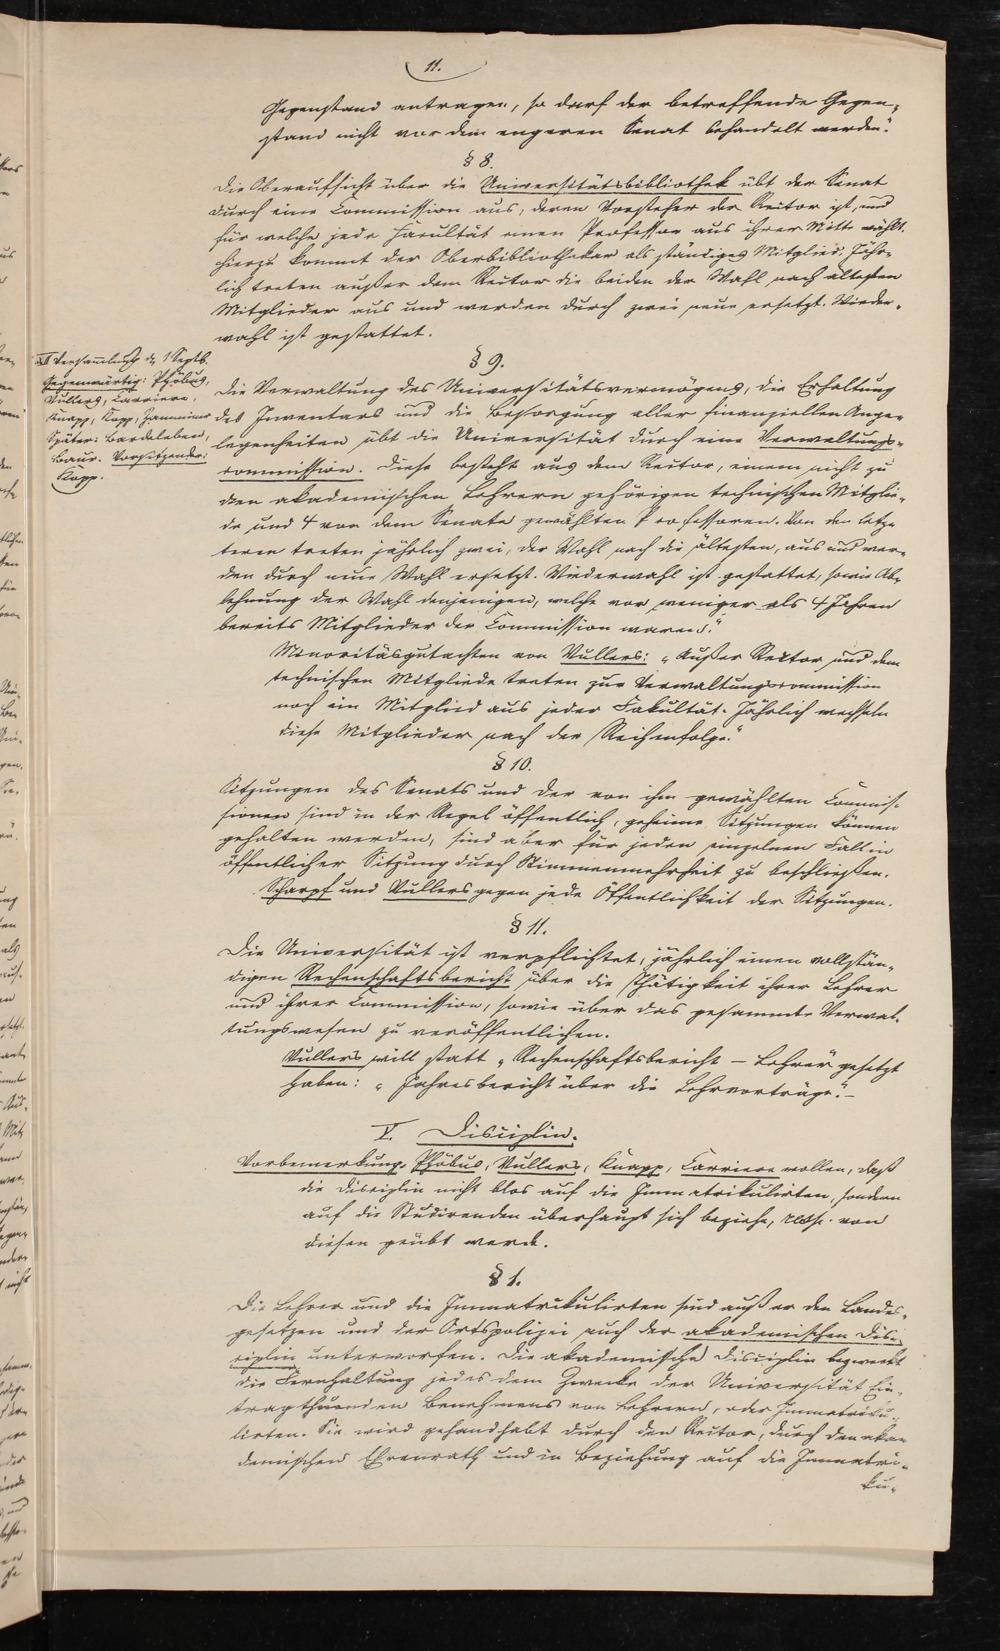 11.
Gegenstand antragen, so darf der betreffende Gegen-
stand nicht vor dem engeren Senat behandelt werden."
§ 8.
Die Oberaufsicht über die Universitätsbibliothek übt der Senat
durch eine Commission aus, deren Vorsteher der Rector ist, und
für welche jede Facultät einen Professor aus ihrer Mitte wählt.
Hierzu kommt der Oberbibliothekar als ständiges Mitglied. Jähr-
lich treten außer dem Rector die beiden der Wahl nach ältesten
Mitglieder aus und werden durch zwei neue ersetzt. Wieder-
wahl ist gestattet.
Versammlung d. 1 Septb.
Gegenwärtig: Phöbus,
Vullers, Carriere,
Knapp, Kopp, Zamminer
Später: Bardeleben,
Baur. Vorsitzender:
Kopp.
§ 9.
Die Verwaltung des Universitätsvermögens, die Erhaltung
des Inventars und die Besorgung aller finanziellen Ange-
legenheiten übt die Universität durch eine Verwaltungs-
commission. Diese besteht aus dem Rector, einem nicht zu
den akademischen Lehrern gehörigen technischen Mitglie-
de und 4 von dem Senate gewählten Professoren. Von den letz-
teren treten jährlich zwei, der Wahl nach die ältesten, aus und wer-
den durch neue Wahl ersetzt. Wiederwahl ist gestattet, sowie Ab-
lehnung der Wahl denjenigen, welche vor weniger als 4 Jahren
bereits Mitglieder der Commission waren."
Minoritäsgutachten von Vullers: "Außer Rektor und dem
technischen Mitgliede treten zur Verwaltungscommission
noch ein Mitglied aus jeder Fakultät. Jährlich wechseln
diese Mitglieder nach der Reihenfolge."
§ 10.
Sitzungen des Senats und der von ihm gewählten Commis-
sionen sind in der Regel öffentlich, geheime Sitzungen können
gehalten werden, sind aber für jeden einzelnen Fall in
öffentlicher Sitzung durch Stimmenmehrheit zu beschließen.
Scharpf und Vullers gegen jede Öffentlichkeit der Sitzungen.
§ 11.
Die Universität ist verpflichtet, jährlich einen vollstän-
digen Rechenschaftsbericht über die Thätigkeit ihrer Lehrer
und ihrer Commission, sowie über das gesammte Verwal-
tungswesen zu veröffentlichen.
Vullers will statt "Rechenschaftsbericht – Lehrer" gesetzt
haben: "Jahresbericht über die Lehrvorträge." –
V. Disciplin.
Vorbemerkung. Phöbus, Vullers, Knapp, Carriere wollen, daß
die Disciplin nicht blos auf die Immatrikulirten, sondern
auf die Studirenden überhaupt sich beziehe, resp. von
diesen geübt werde.
§ 1.
Die Lehrer und die Immatrikulirten sind außer den Landes-
gesetzen und der Ortspolizei auch der akademischen Dis-
ciplin unterworfen. Die akademische Disciplin bezweckt
die Fernhaltung jedes dem Zwecke der Universität Ein-
tragthuenden Benehmens von Lehrern, oder Immatriku-
lirten. Sie wird gehandhabt durch den Rector, durch den aka-
demischen Ehrenrath und in Beziehung auf die Immatri-
ku-